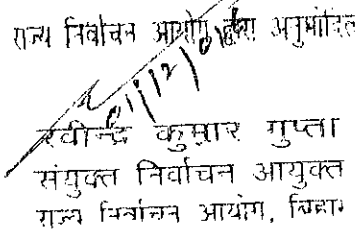 राज्य निर्वाचन आयोग द्वारा अनुमोदित
रवीन्द्र कुमार गुप्ता
संयुक्त निर्वाचन आयुक्त
राज्य निर्वाचन आयोग, बिहार